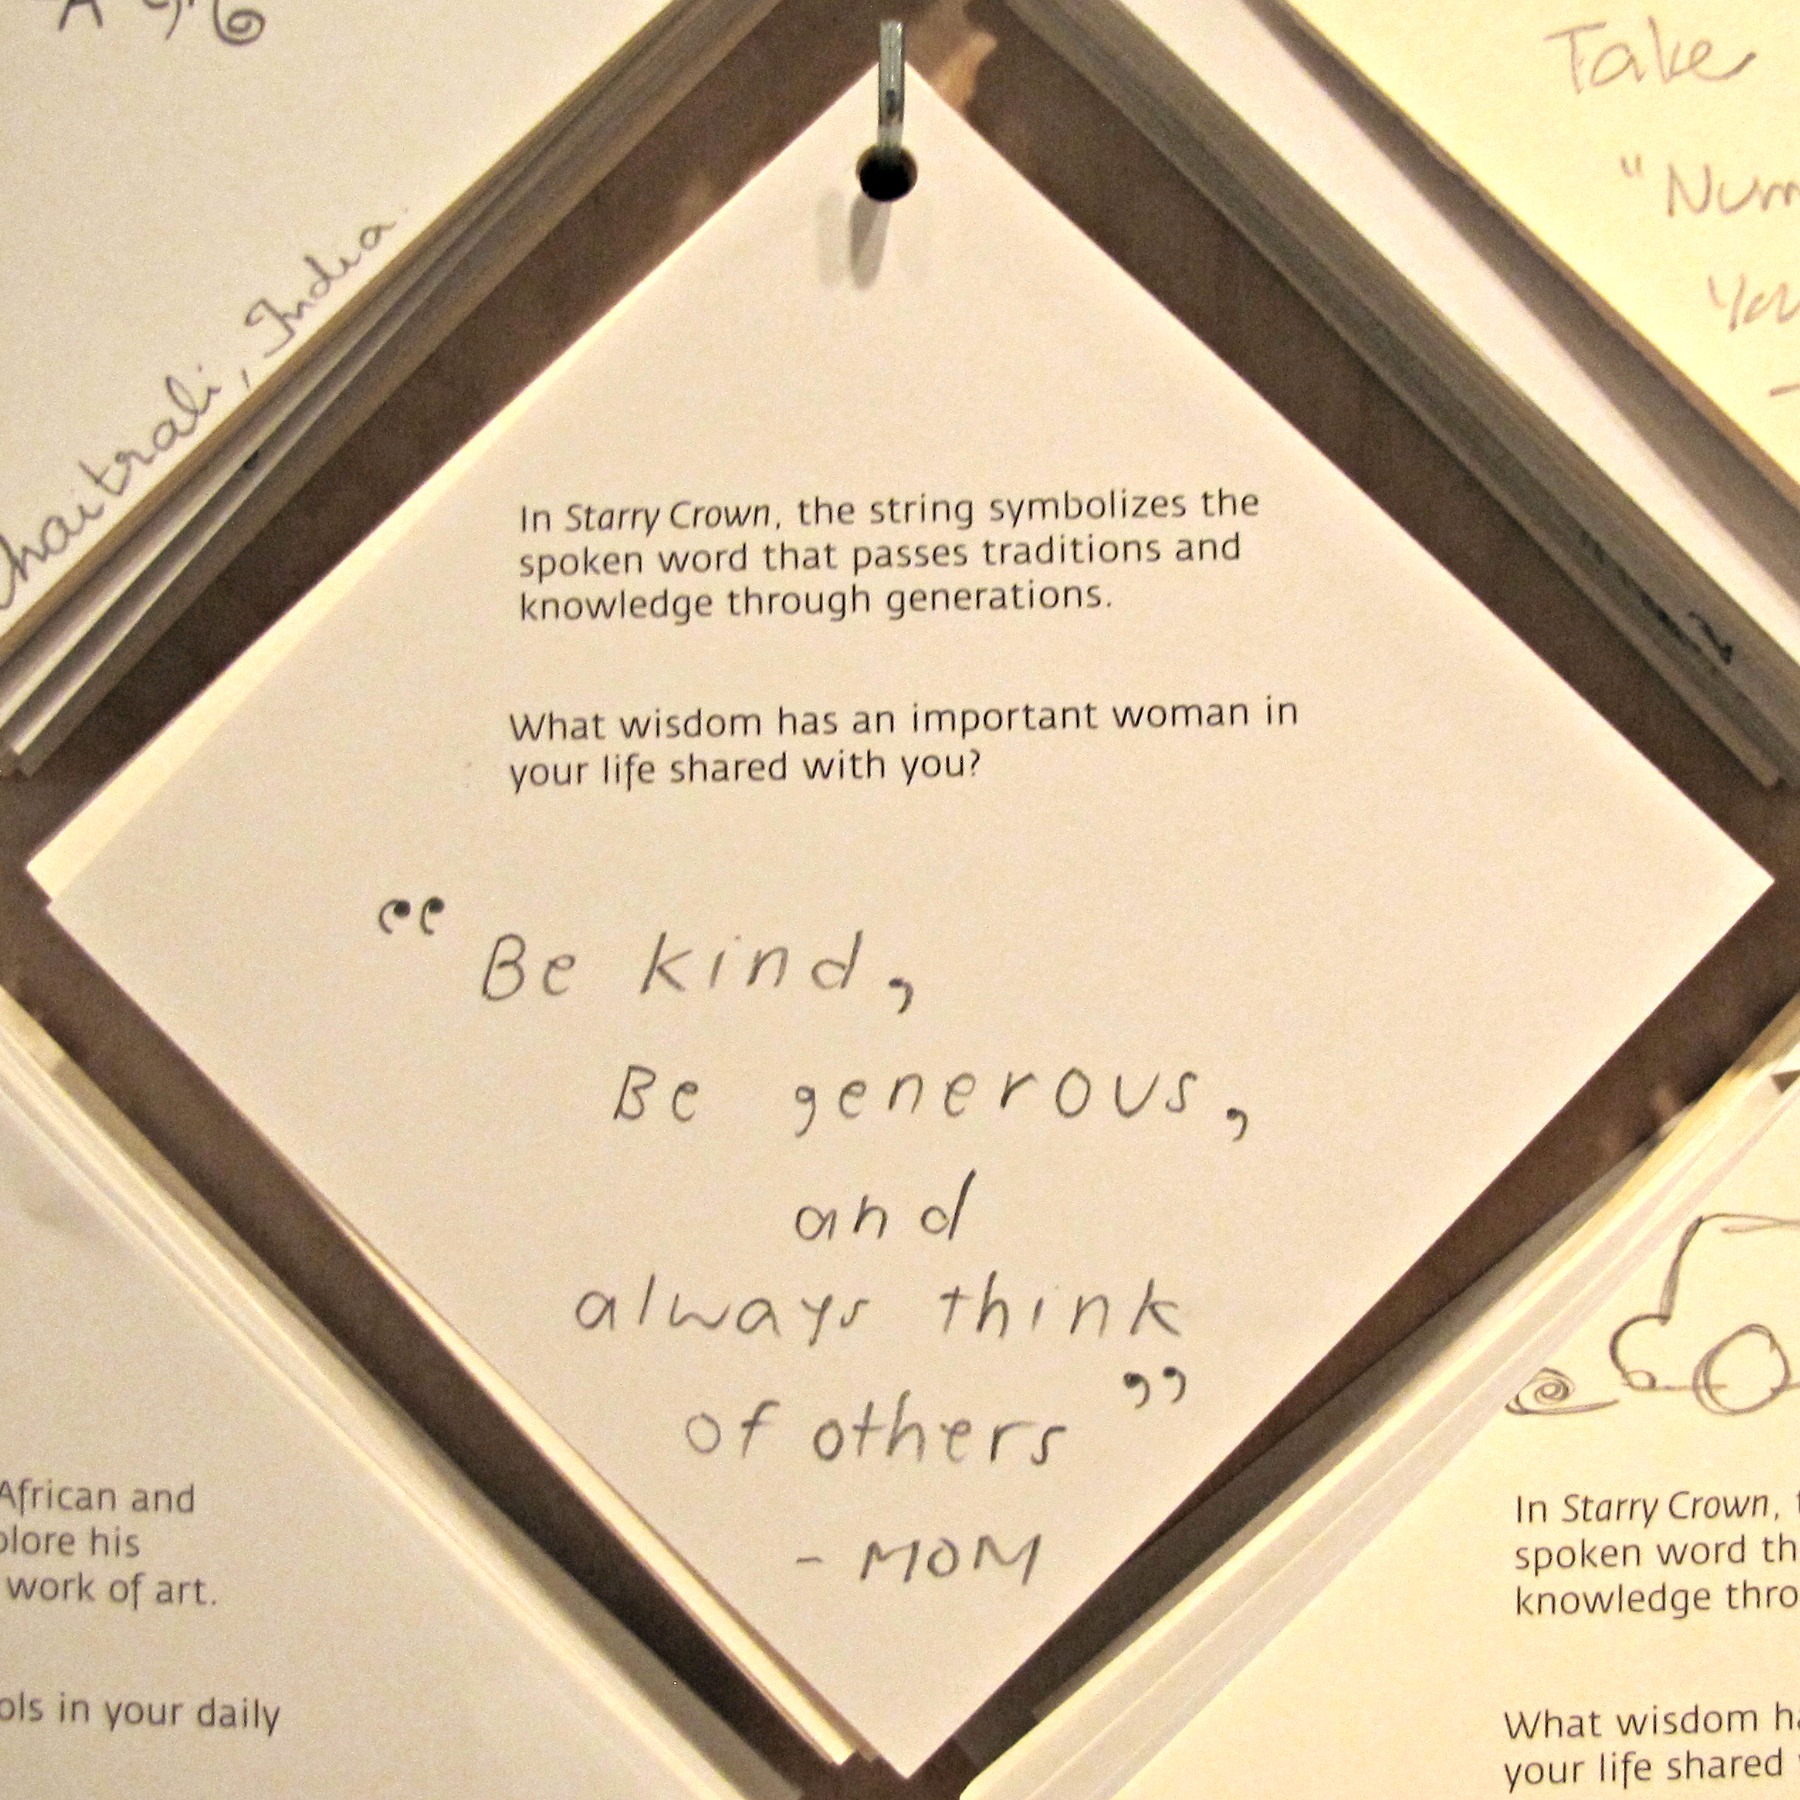 Chaitrali, India.
Take
In Starry Crown, the string symbolizes the
spoken word that passes traditions and
knowledge through generations.
What wisdom has an important woman in
your life shared with you?
“Be kind,
Be generous,
and
always think
of others”
- MOM
African and
his
work of art.
in your daily
In Starry Crown,
spoken word
knowledge
What wisdom
your life shared